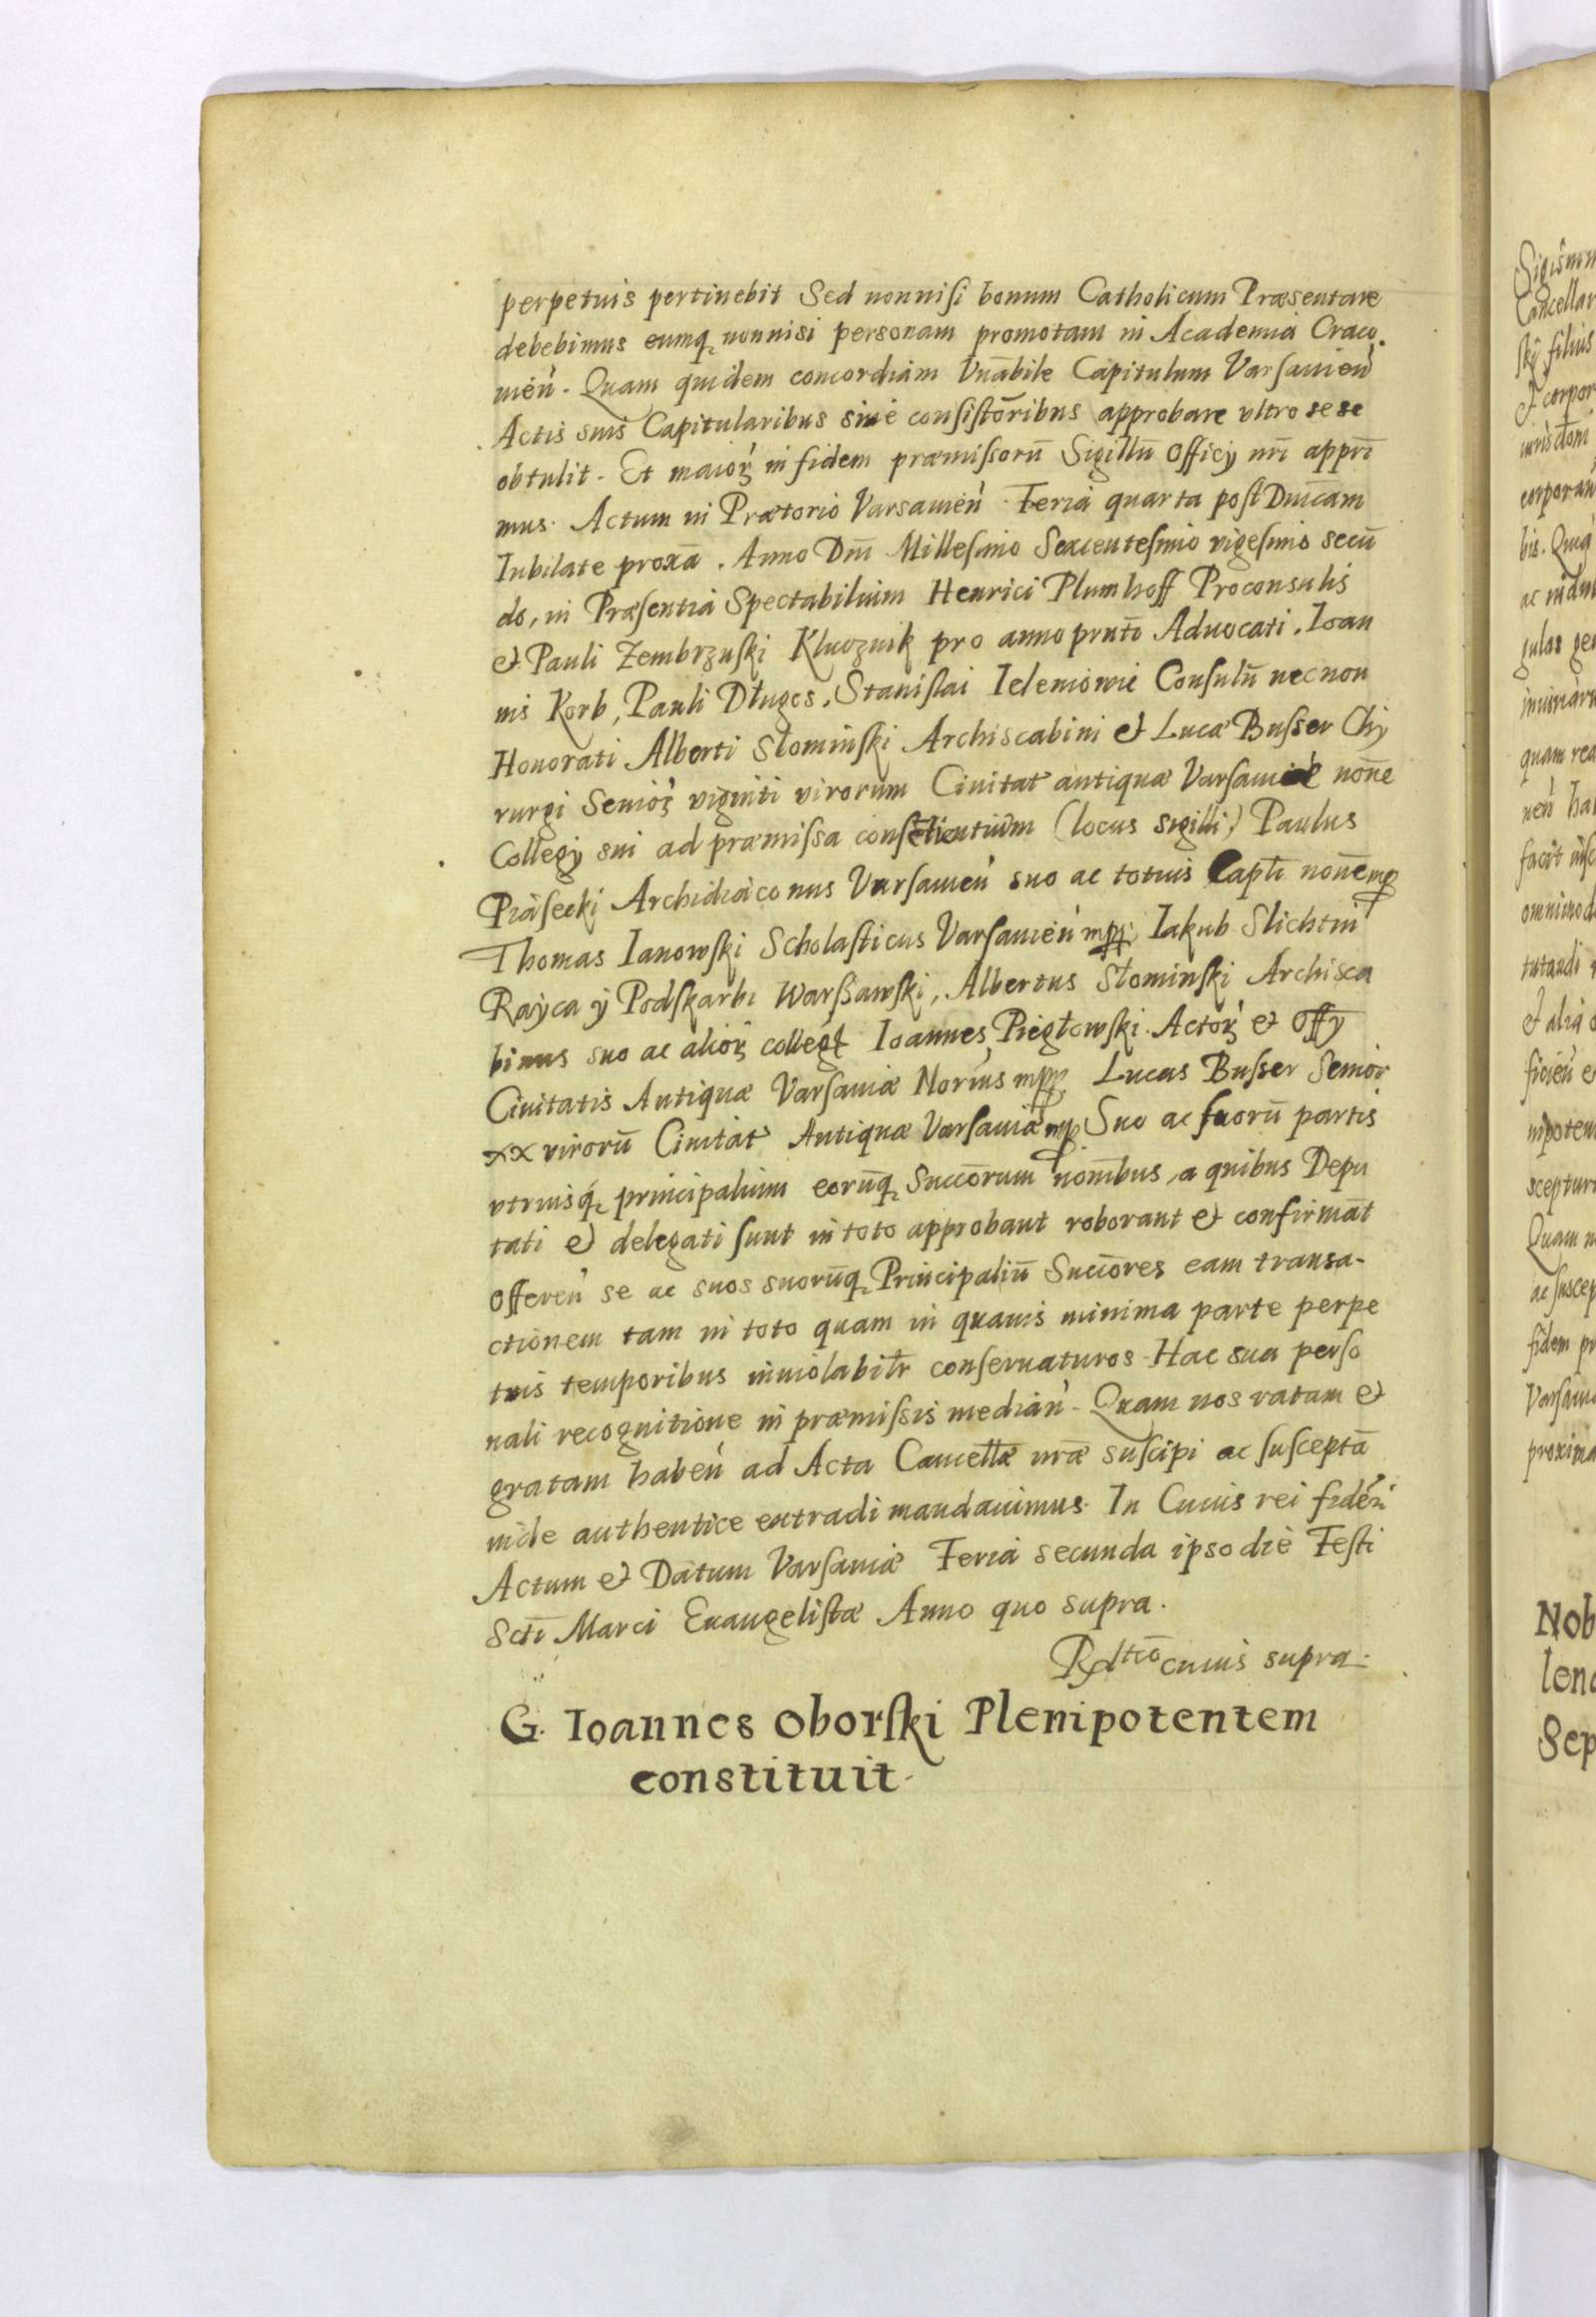 perpetuis pertinebit Sed nonnisi bonum Catholicum Præsentare
debebimus eumq nonnisi personam promotam in Academia Craco.
uien̄. Quam quidem concordiam Vn̄abile Capitulum Varsauien̄
Actis suis Capitularibus siue consistōribus approbare vltro sese
obtulit. Et maioꝝ in fidem præmissorū Sigillū Officÿ nrī apprī
mus. Actum in Prætorio Varsauien̄ Feria quarta post Dnīcam
Iubilate proxā. Anno Dnī Millesimo Sexcentesimo vigesimo secū
do, in Præsentia Spectabilium Henrici Plumhoff Proconsulis
et Pauli Zembrzuski Kluoznik pro anno prn̄tī Aduocati. Ioan
nis Korb, Pauli Długos, Stanislai Ieleniowie Consulū nec non
Honorati Alberti Słominski Archiscabini et Lucæ Busser Chy
rurgi Senioꝝ viginti virorum Ciuitat̄ antiquæ Varsauiæ nōne
Collegÿ sui ad præmissa consētientium (locus sigilli) Paulus
Piasecki Archidiaconus Varsauien̄ suo ac totius Capłi nōne mp
Thomas Ianowski Scholasticus Varsauien̄ mpp. Iakub Slichtin
Rayca ÿ Podskarbi Warszawski, Albertus Słominski Archisca
binus suo ac alioꝝ Ioannes Piegłowski Actoꝝ et Offÿ
Ciuitatis Antiquæ Varsauiæ Norīus mpp. Lucas Busser Senior
xx virorū Ciuitat̄ Antiquæ Varsauiæ mp Suo ac suorū partis
vtriusq principalium eorūq Succōrum nomībus, a quibus Depu
tati et delegati sunt in toto approbant roborant et confirmāt
Offeren̄ se ac suos suorūq Principaliū Succōres eam transa-
ctionem tam in toto quam in quauis minima parte perpe
tuis temporibus inuiolabilr̄ conseruaturos. Hac sua perso
nali recognitione in præmissis median̄. Quam nos ratam et
gratam haben̄ ad Acta Cancellæ nr̄æ suscipi ac susceptā
inde authentice extradi mandauimus. In Cuius rei fidem
Actum et Datum Varsauiæ Feria secunda ipso die Festi
Sctī Marci Euangelistæ Anno quo supra.
Rltīo cuius supra.
G. Ioannes Oborski Plenipotentem
constituit.